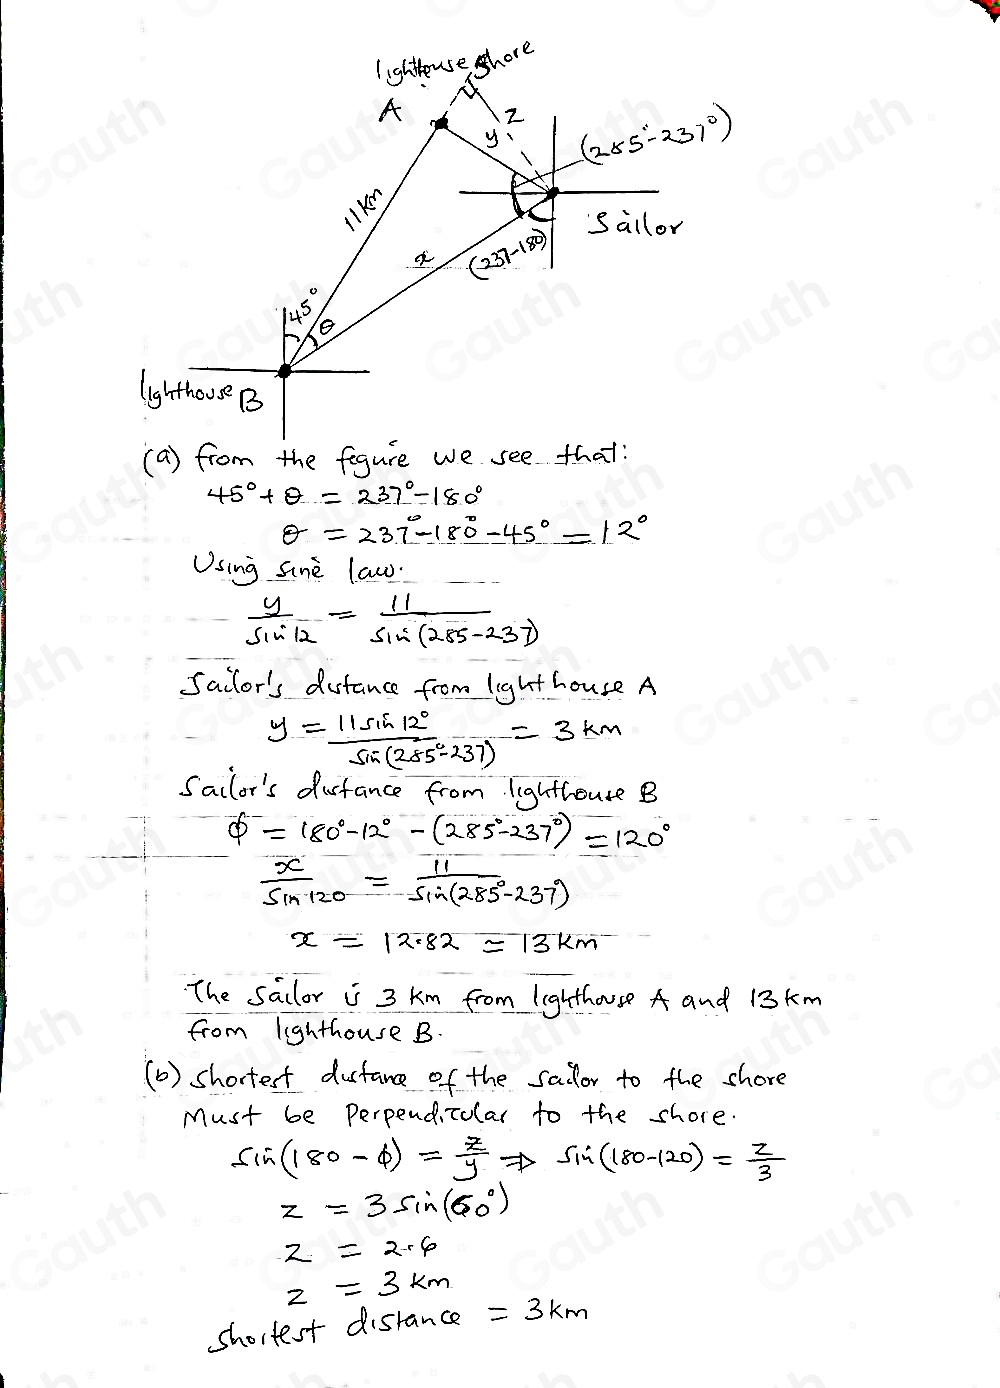 lighthouse shore
A
z
y
(285°-237°)
11km
Sailor
x
(237-180)
45°
θ
lighthouse B
(a) from the fegure we see that:
45° + θ = 237° - 180°
θ = 237° - 180° - 45° = 12°
Using sine law.
y/sin 12 = 11/sin(285-237)
Sailor's distance from lighthouse A
y = 11 sin 12°/sin(285°-237) = 3 km
Sailor's distance from lighthouse B
ϕ = 180° - 12° - (285° - 237°) = 120°
x/sin 120 = 11/sin(285°-237°)
x = 12.82 ≃ 13 km
The sailor is 3 km from lighthouse A and 13 km
from lighthouse B.
(b) shortest distance of the sailor to the shore
Must be perpendicular to the shore.
sin(180 - ϕ) = z/y ⇒ sin(180-120) = z/3
z = 3 sin(60°)
z = 2.6
z = 3 km
shortest distance = 3 km
Gauth